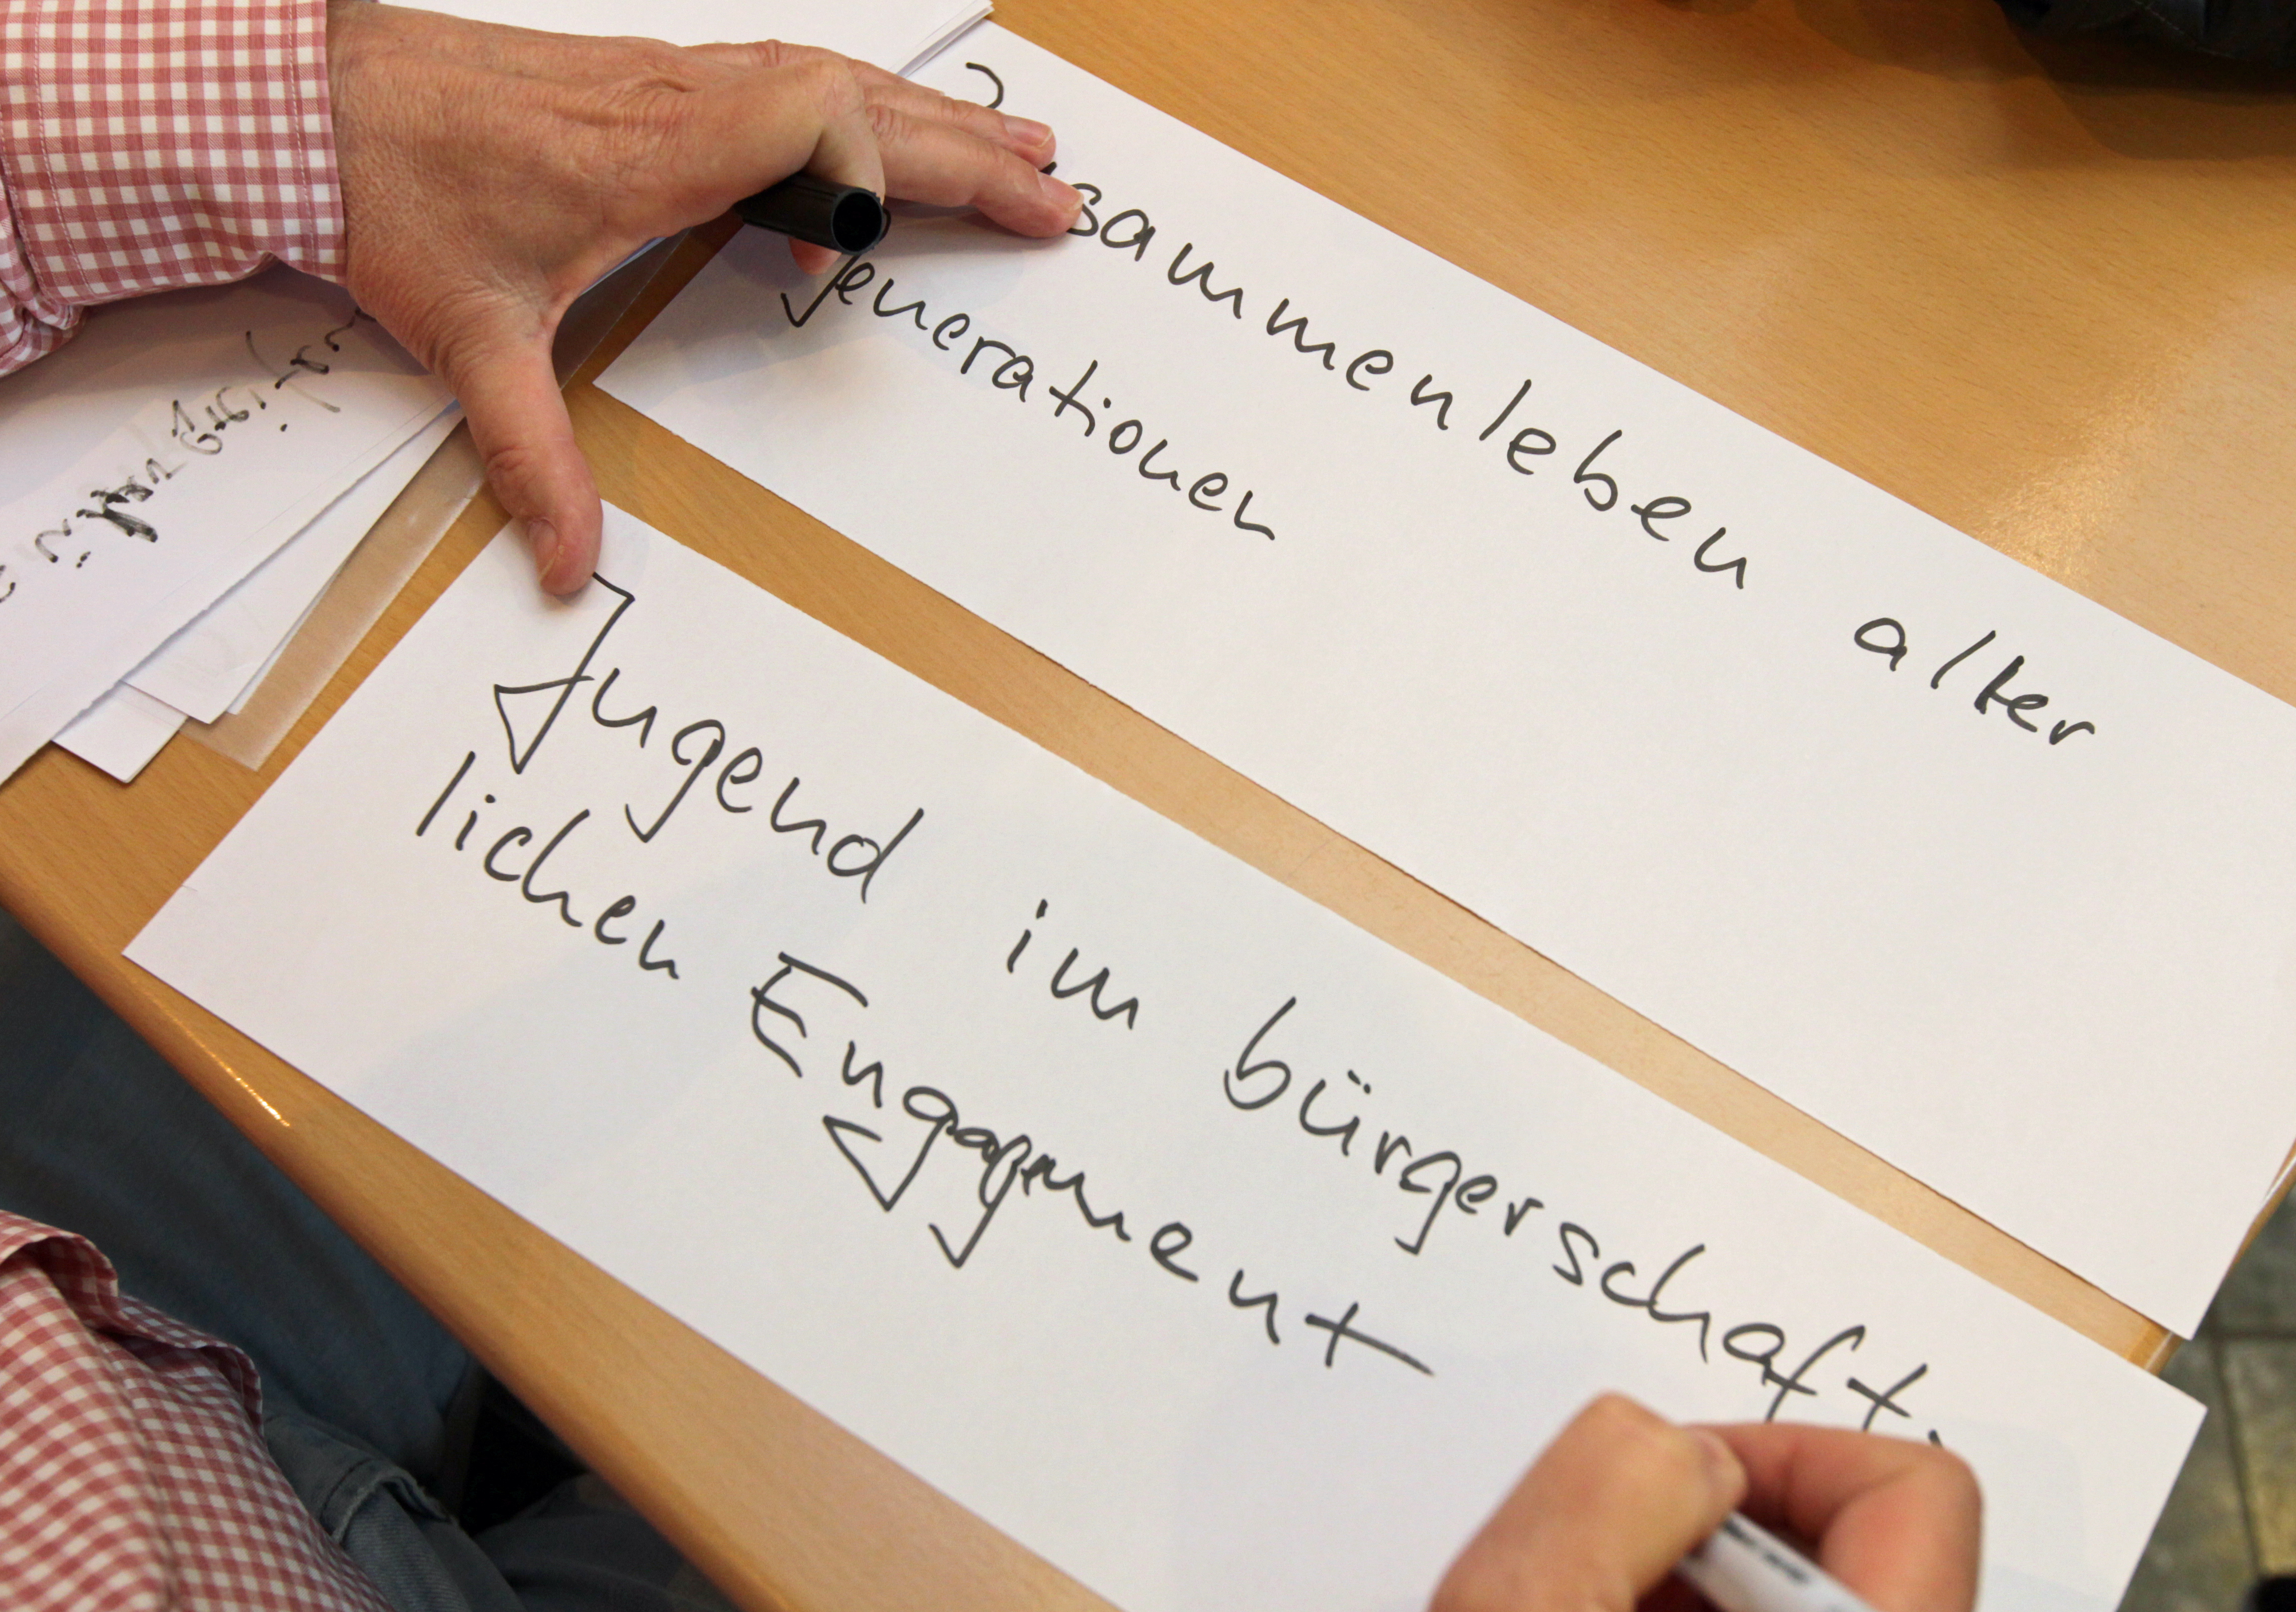 Zusammenleben alter
Generationen
Jugend im bürgerschaft-
lichen Engagement